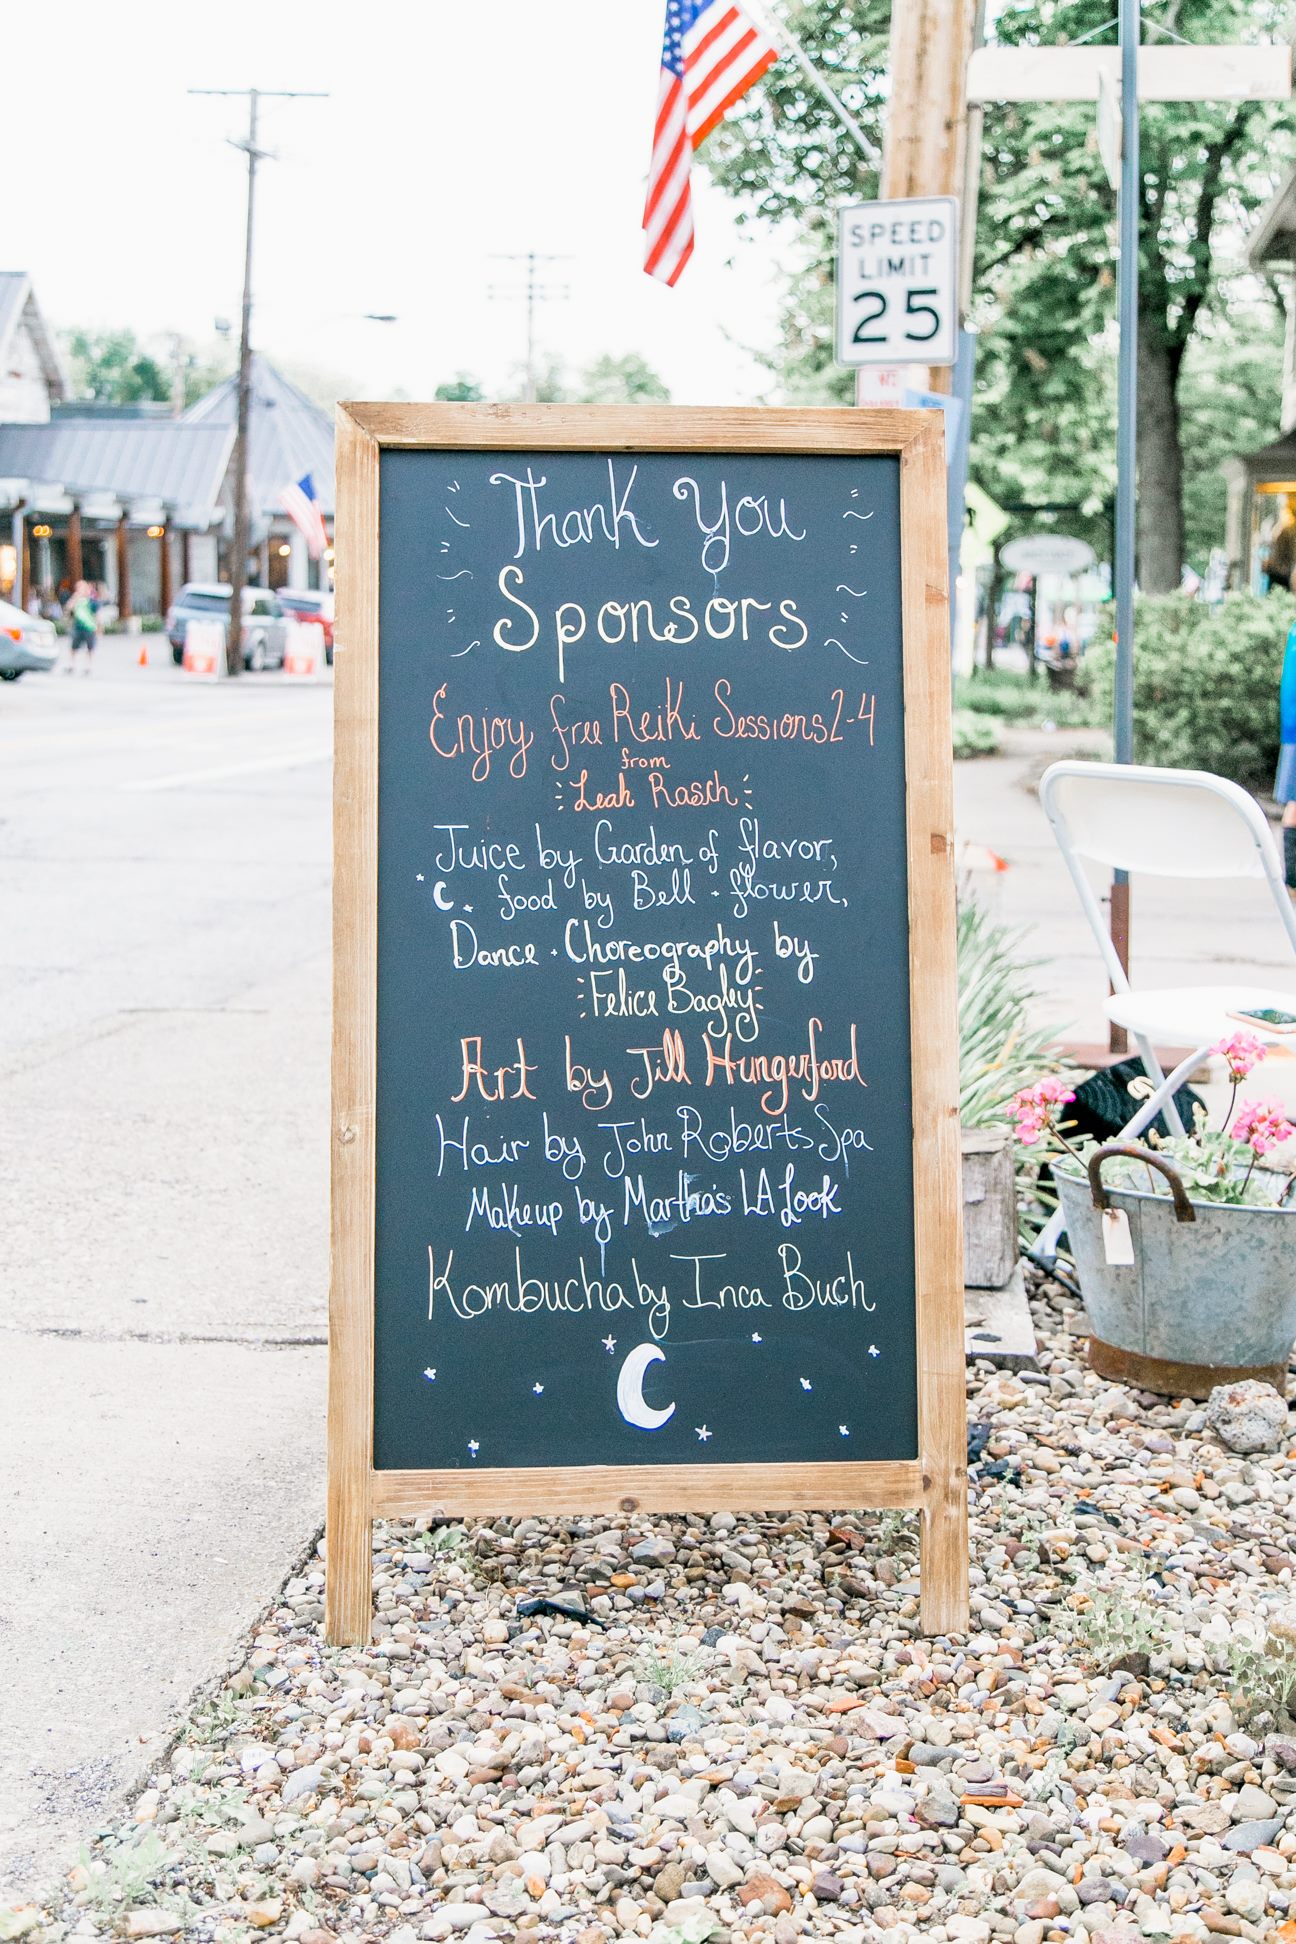 SPEED
LIMIT
25
Thank You
Sponsors
Enjoy free Reiki Sessions 2-4
from
Leah Rasch
Juice by Garden of flavor,
food by Bell + flower,
Dance + Choreography by
Felice Bagley
Art by Jill Hungerford
Hair by John Roberts Spa
Makeup by Martha's LA Look
Kombucha by Inca Buch